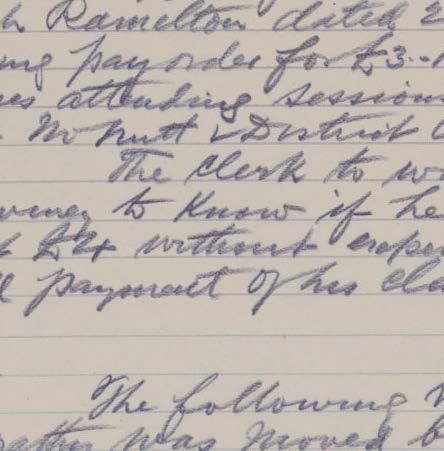 h Ramelton dated 2
ing pay order for £3-1
es attending session
McNutt & District C
The Clerk to wr
orney to know if he
£4 without expen
l payment of his cla
The following N
was moved b